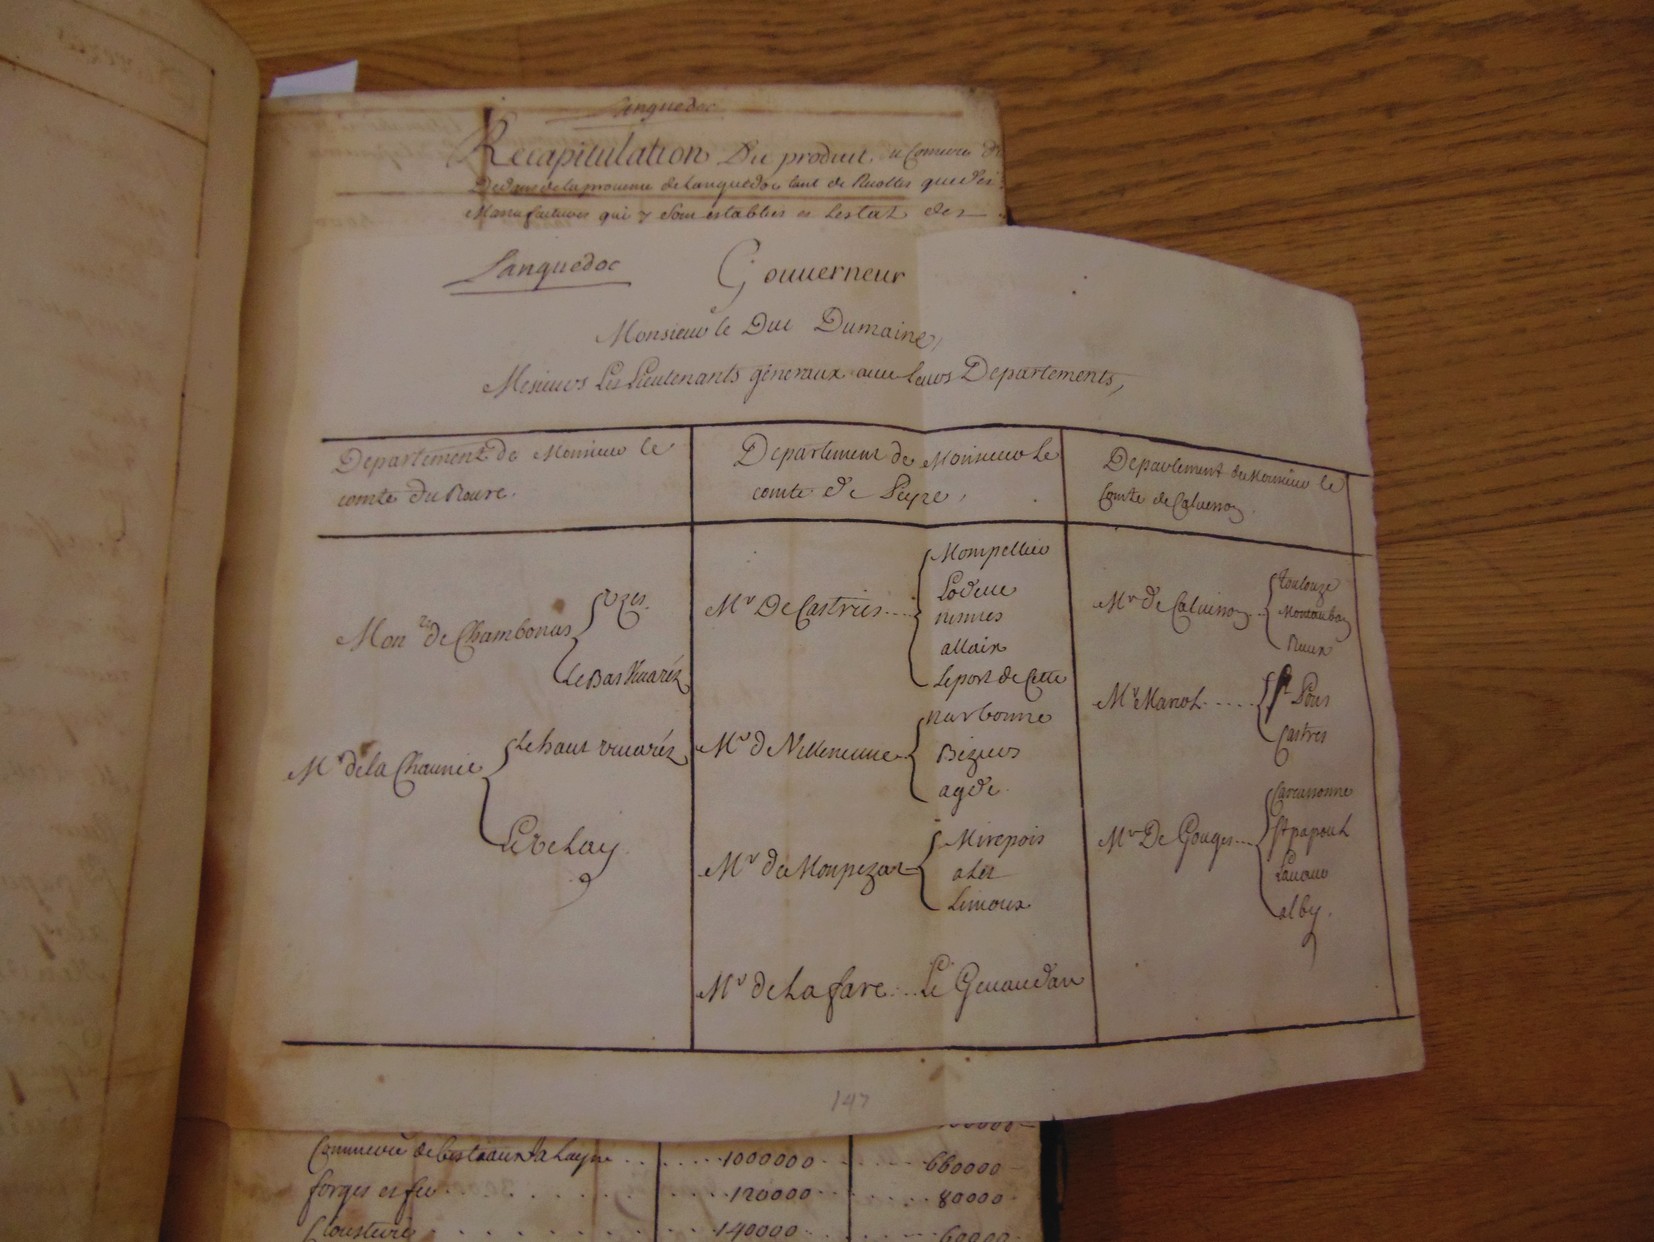 Languedoc
Recapitulation Du produit, et Commerce de
Dedans de la province de Languedoc tant de Recoltes que des
Manufactures qui y Sont establies et Lestat des
Languedoc
Gouuerneur
Monsieur le Duc Dumaine,
Messieurs Les Lieutenants généraux auec leurs Departements,
Departement de Monsieur le
comte du Roure.
Departement de Monsieur Le
comte de Peyre,
Departement de Monsieur le
Comte de Caluisson
Monr. de Chambonas
Uzes.
Le Bas Viuaréz
Mr de la Chaunie
Le haut viuaréz
Le Velay
Mr De Castries....
Mompellier
Lodeue
nismes
allaix
Le port de Cette
Mr de Villeneuue
narbonne
Béziers
agde.
Mr de Monpezat
Mirepois
alet
Limoux
Mr de La fare....Le Geuaudan
Mr de Caluisson..
toulouze
Montauban
Rieux
Mr Mariot.....
St Pons
Castres
Mr De Gouges...
Carcassonne
St papoul
Lauaur
alby.
147
Commerce de bestiaux à Layne......1000000......660000
forges et feu......120000......80000
140000......60000